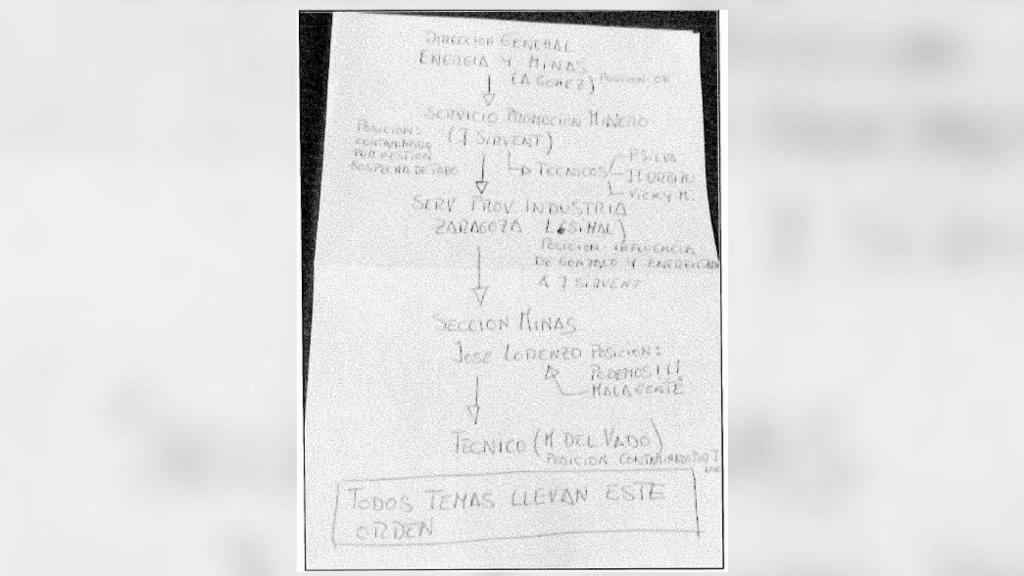 DIRECCION GENERAL
ENERGIA Y MINAS
(A GOMEZ) POSICION OK
SERVICIO PROMOCION MINERO
(J SIRVENT)
POSICION:
CONTAMINADO
POR GESTION
SOSPECHA DE TODO
TECNICOS
VICKY M.
SERV PROV. INDUSTRIA
ZARAGOZA (L SIMAL)
POSICION: INFLUENCIA
DE GONZALO Y ENFRENTADA
A J SIRVENT
SECCION MINAS
JOSE LORENZO POSICION:
PODEMOS!!!
MALA GENTE
TECNICO (M. DEL VADO)
POSICION CONTAMINADO POR J
TODOS TEMAS LLEVAN ESTE
ORDEN